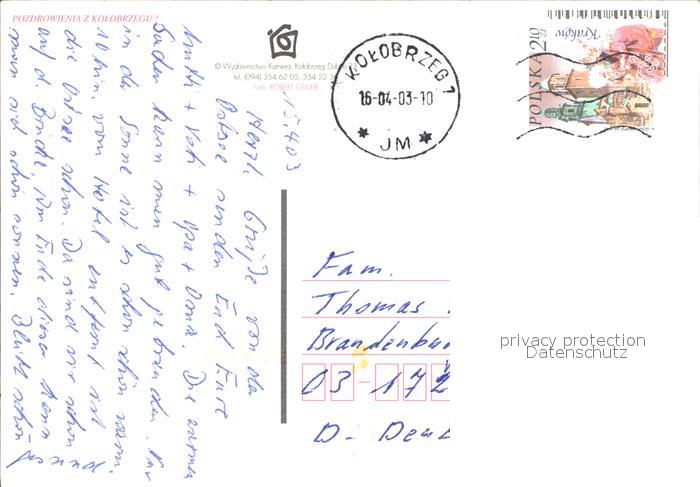 POZDROWIENIA Z KOŁOBRZEGU!
© Wydawnictwo Kamera, Kołobrzeg, Dub
tel. (094) 354 62 05, 354 22 3
Foto: ROBERT GRUDI
KOŁOBRZEG 1
16-04-03-10
JM
POLSKA 2,10 ZŁ
Kraków
15.4.03
Herzl. Grüße von der
Ostsee senden Euch Eure
Mutti + Vati + Opa + Oma. Die warmen
Sachen kann man gut gebrauchen. Nur
in der Sonne ist es schon schön warm.
10 km vom Hotel entfernt ist
die Ostsee schon. Da sind wir schon
auf d. Brücke. Am Ende dieser kann
man sich schön sonnen.
Fam.
Thomas
Brandenbu
03-172
D- Deut
privacy protection
Datenschutz